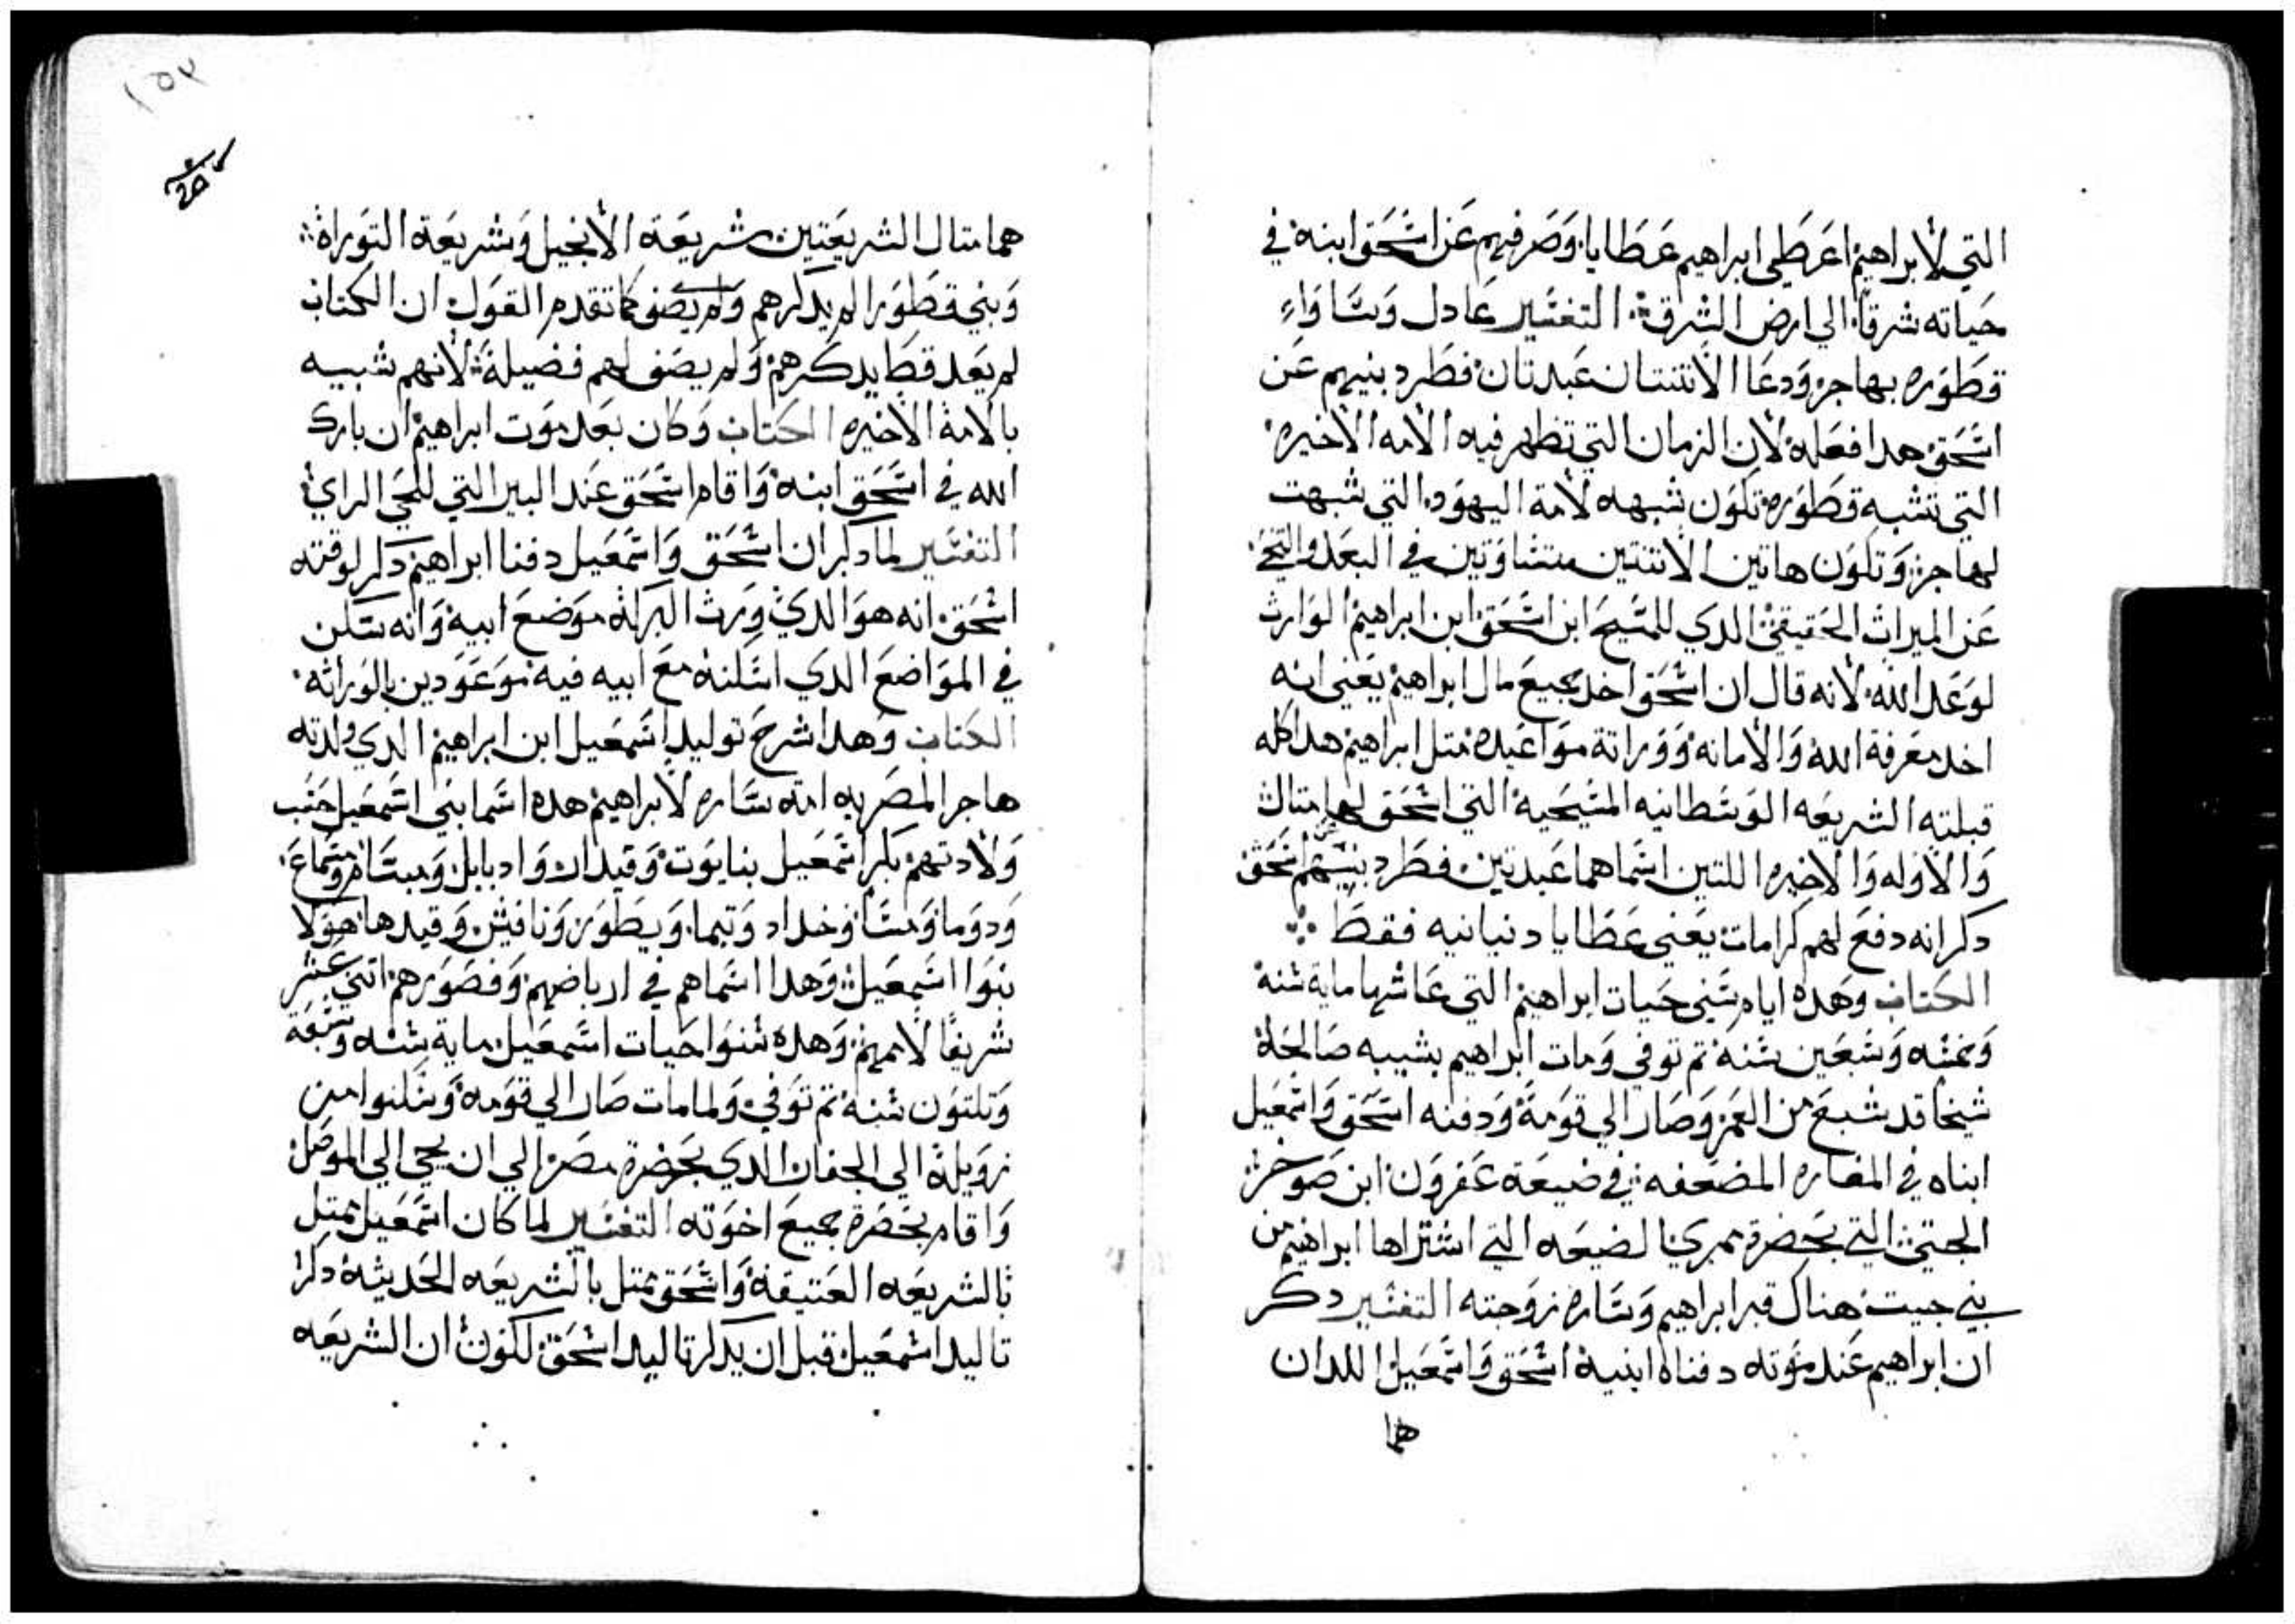 التي لابراهيم اعطي ابراهيم عطايا وصرفهم عن اسحق ابنه في
حياته شرقا الي ارض الشرق التفسير عادل وساواء
قطوره بهاجر ودعا الاتنتان عبدتان فطرد بنيهم عن
اسحق هدا فعله لان الزمان التي تظهر فيه الامه الاخيره
التي تشبه قطوره تكون شبهه لامة اليهود التي شبهت
لهاجر وتكون هاتين الاتنتين متساوتين في البعد والتنحي
عن الميراث الحقيقي الدي للمسيح ابن اسحق ابن ابراهيم الوارث
لوعد الله لانه قال ان اسحق اخد جميع مال ابراهيم يعني انه
اخد معرفة الله والامانه ووراتة مواعيده متل ابراهيم هدا كله
قبلته الشريعه الوسطانيه المسيحية التي اسحق لها متال
والاوله والاخيره اللتين اسماهما عبدتين فطرد بنيهم عن اسحق
دكر انه دفع لهم كرامات يعني عطايا دنيانيه فقط
الكتاب وهده ايام سني حيات ابراهيم التي عاشها ماية سنة
وخمسه وسبعين سنه تم توفي ومات ابراهيم بشيبه صالحة
شيخا قد شبع من العمر وصار الي قومة ودفنه اسحق واسمعيل
ابناه في المغاره المضعفه في ضيعة عفرون ابن صوخر
الحيتي التي بحضرة ممري الضيعه التي اشتراها ابراهيم من
بني حيت هناك قبر ابراهيم وساره زوجته التفسير دكر
ان ابراهيم عند موته دفناه ابنية اسحق واسمعيل اللدان
هما
١٥٣
هما متال الشريعتين شريعة الانجيل وشريعة التوراة
وبني قطورا لم يدكرهم ولم يصف كما تقدم القول ان الكتاب
لم يعد قط يدكرهم ولم يصف لهم فضيلة لانهم شبيه
بالامة الاخيره الكتاب وكان بعد موت ابراهيم ان بارك
الله في اسحق ابنه واقام اسحق عند البير التي للحي الراي
التفسير لما دكر ان اسحق واسمعيل دفنا ابراهيم دكر لوقته
اسحق انه هو الدي ورث البركة موضع ابيه وانه سكن
في المواضع الدي اسكنه مع ابيه فيه موعودين بالوراته
الكتاب وهدا شرح توليد اسمعيل ابن ابراهيم الدي ولدته
هاجر المصريه امة ساره لابراهيم هده اسما بني اسمعيل حسب
ولادتهم بكر اسمعيل بنايوت وقيدار وادبابل ومبسام ومسماع
ودوما ومسا وخداد وتيما ويطور ونافيش وقيدما هولا
بنوا اسمعيل وهدا اسماهم في ارباضهم وقصورهم اتني عشر
شريفا لاممهم وهده سنوا حيات اسمعيل ماية سنه وسبعة
وتلتون سنه تم توفي ولما مات صار الي قومه وسكنوا من
زويلة الي الجفار الدي بحضرة مصر الي ان يجي الي الموصل
واقام بحضرة جميع اخوته التفسير لما كان اسمعيل يمتل
بالشريعه العتيقة واسحق يمتل بالشريعه الحديثة دكر
تاليد اسمعيل قبل ان يدكر تاليد اسحق لكون ان الشريعه